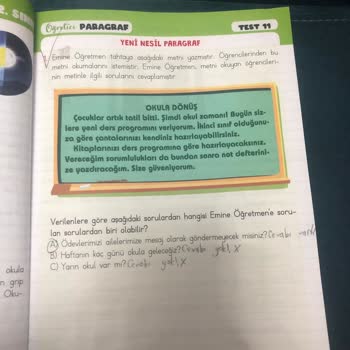 2. SINI
Öğretici PARAGRAF
TEST 11
YENİ NESİL PARAGRAF
Emine Öğretmen tahtaya aşağıdaki metni yazmıştır. Öğrencilerinden bu
metni okumalarını istemiştir. Emine Öğretmen, metni okuyan öğrencileri-
nin metinle ilgili sorularını cevaplamıştır.
OKULA DÖNÜŞ
Çocuklar artık tatil bitti. Şimdi okul zamanı! Bugün siz-
lere yeni ders programını veriyorum. İkinci sınıf olduğunu-
za göre çantalarınızı kendiniz hazırlayabilirsiniz.
Kitaplarınızı ders programına göre hazırlayacaksınız.
Vereceğim sorumlulukları da bundan sonra not defterini-
ze yazdıracağım. Size güveniyorum.
Verilenlere göre aşağıdaki sorulardan hangisi Emine Öğretmen'e soru-
lan sorulardan biri olabilir?
A) Ödevlerimizi ailelerimize mesaj olarak göndermeyecek misiniz? Cevabı var
B) Haftanın kaç günü okula geleceğiz? Cevabı yok X
C) Yarın okul var mı? Cevabı yok X
okula
n grip
Oku-